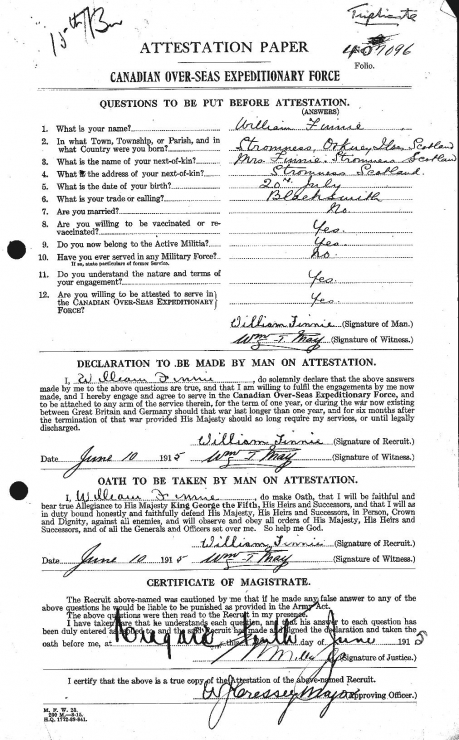 15th/Bn
Triplicate
7096
Folio.
ATTESTATION PAPER
CANADIAN OVER-SEAS EXPEDITIONARY FORCE
QUESTIONS TO BE PUT BEFORE ATTESTATION.
(ANSWERS)
1. What is your name? William Finnie
2. In what Town, Township, or Parish, and in
what Country were you born? Stromness, Scotland
3. What is the name of your next-of-kin? Mrs. Finnie. Stromness Scotland
4. What is the address of your next-of-kin? Stromness Scotland
5. What is the date of your birth? 20th July
6. What is your trade or calling? Blacksmith
7. Are you married? No.
8. Are you willing to be vaccinated or re-
vaccinated? Yes.
9. Do you now belong to the Active Militia? Yes.
10. Have you ever served in any Military Force? No.
If so, state particulars of former Service.
11. Do you understand the nature and terms of
your engagement? Yes.
12. Are you willing to be attested to serve in
the CANADIAN OVER-SEAS EXPEDITIONARY
FORCE? Yes.
William Finnie (Signature of Man.)
Wm T. May (Signature of Witness.)
DECLARATION TO BE MADE BY MAN ON ATTESTATION.
I, William Finnie, do solemnly declare that the above answers
made by me to the above questions are true, and that I am willing to fulfil the engagements by me now
made, and I hereby engage and agree to serve in the Canadian Over-Seas Expeditionary Force, and
to be attached to any arm of the service therein, for the term of one year, or during the war now existing
between Great Britain and Germany should that war last longer than one year, and for six months after
the termination of that war provided His Majesty should so long require my services, or until legally
discharged.
William Finnie (Signature of Recruit.)
Date June 10 1915 Wm T. May (Signature of Witness.)
OATH TO BE TAKEN BY MAN ON ATTESTATION.
I, William Finnie, do make Oath, that I will be faithful and
bear true Allegiance to His Majesty King George the Fifth, His Heirs and Successors, and that I will as
in duty bound honestly and faithfully defend His Majesty, His Heirs and Successors, in Person, Crown
and Dignity, against all enemies, and will observe and obey all orders of His Majesty, His Heirs and
Successors, and of all the Generals and Officers set over me. So help me God.
William Finnie (Signature of Recruit.)
Date June 10 1915 Wm T. May (Signature of Witness.)
CERTIFICATE OF MAGISTRATE.
The Recruit above-named was cautioned by me that if he made any false answer to any of the
above questions he would be liable to be punished as provided in the Army Act.
The above questions were then read to the Recruit in my presence.
I have taken care that he understands each question, and that his answer to each question has
been duly entered as replied to, and the said Recruit has made and signed the declaration and taken the
oath before me, at this day of June 1915
(Signature of Justice.)
I certify that the above is a true copy of the Attestation of the above-named Recruit.
Cressey Major (Approving Officer.)
M. F. W. 23.
H.Q. 1772-39-841.